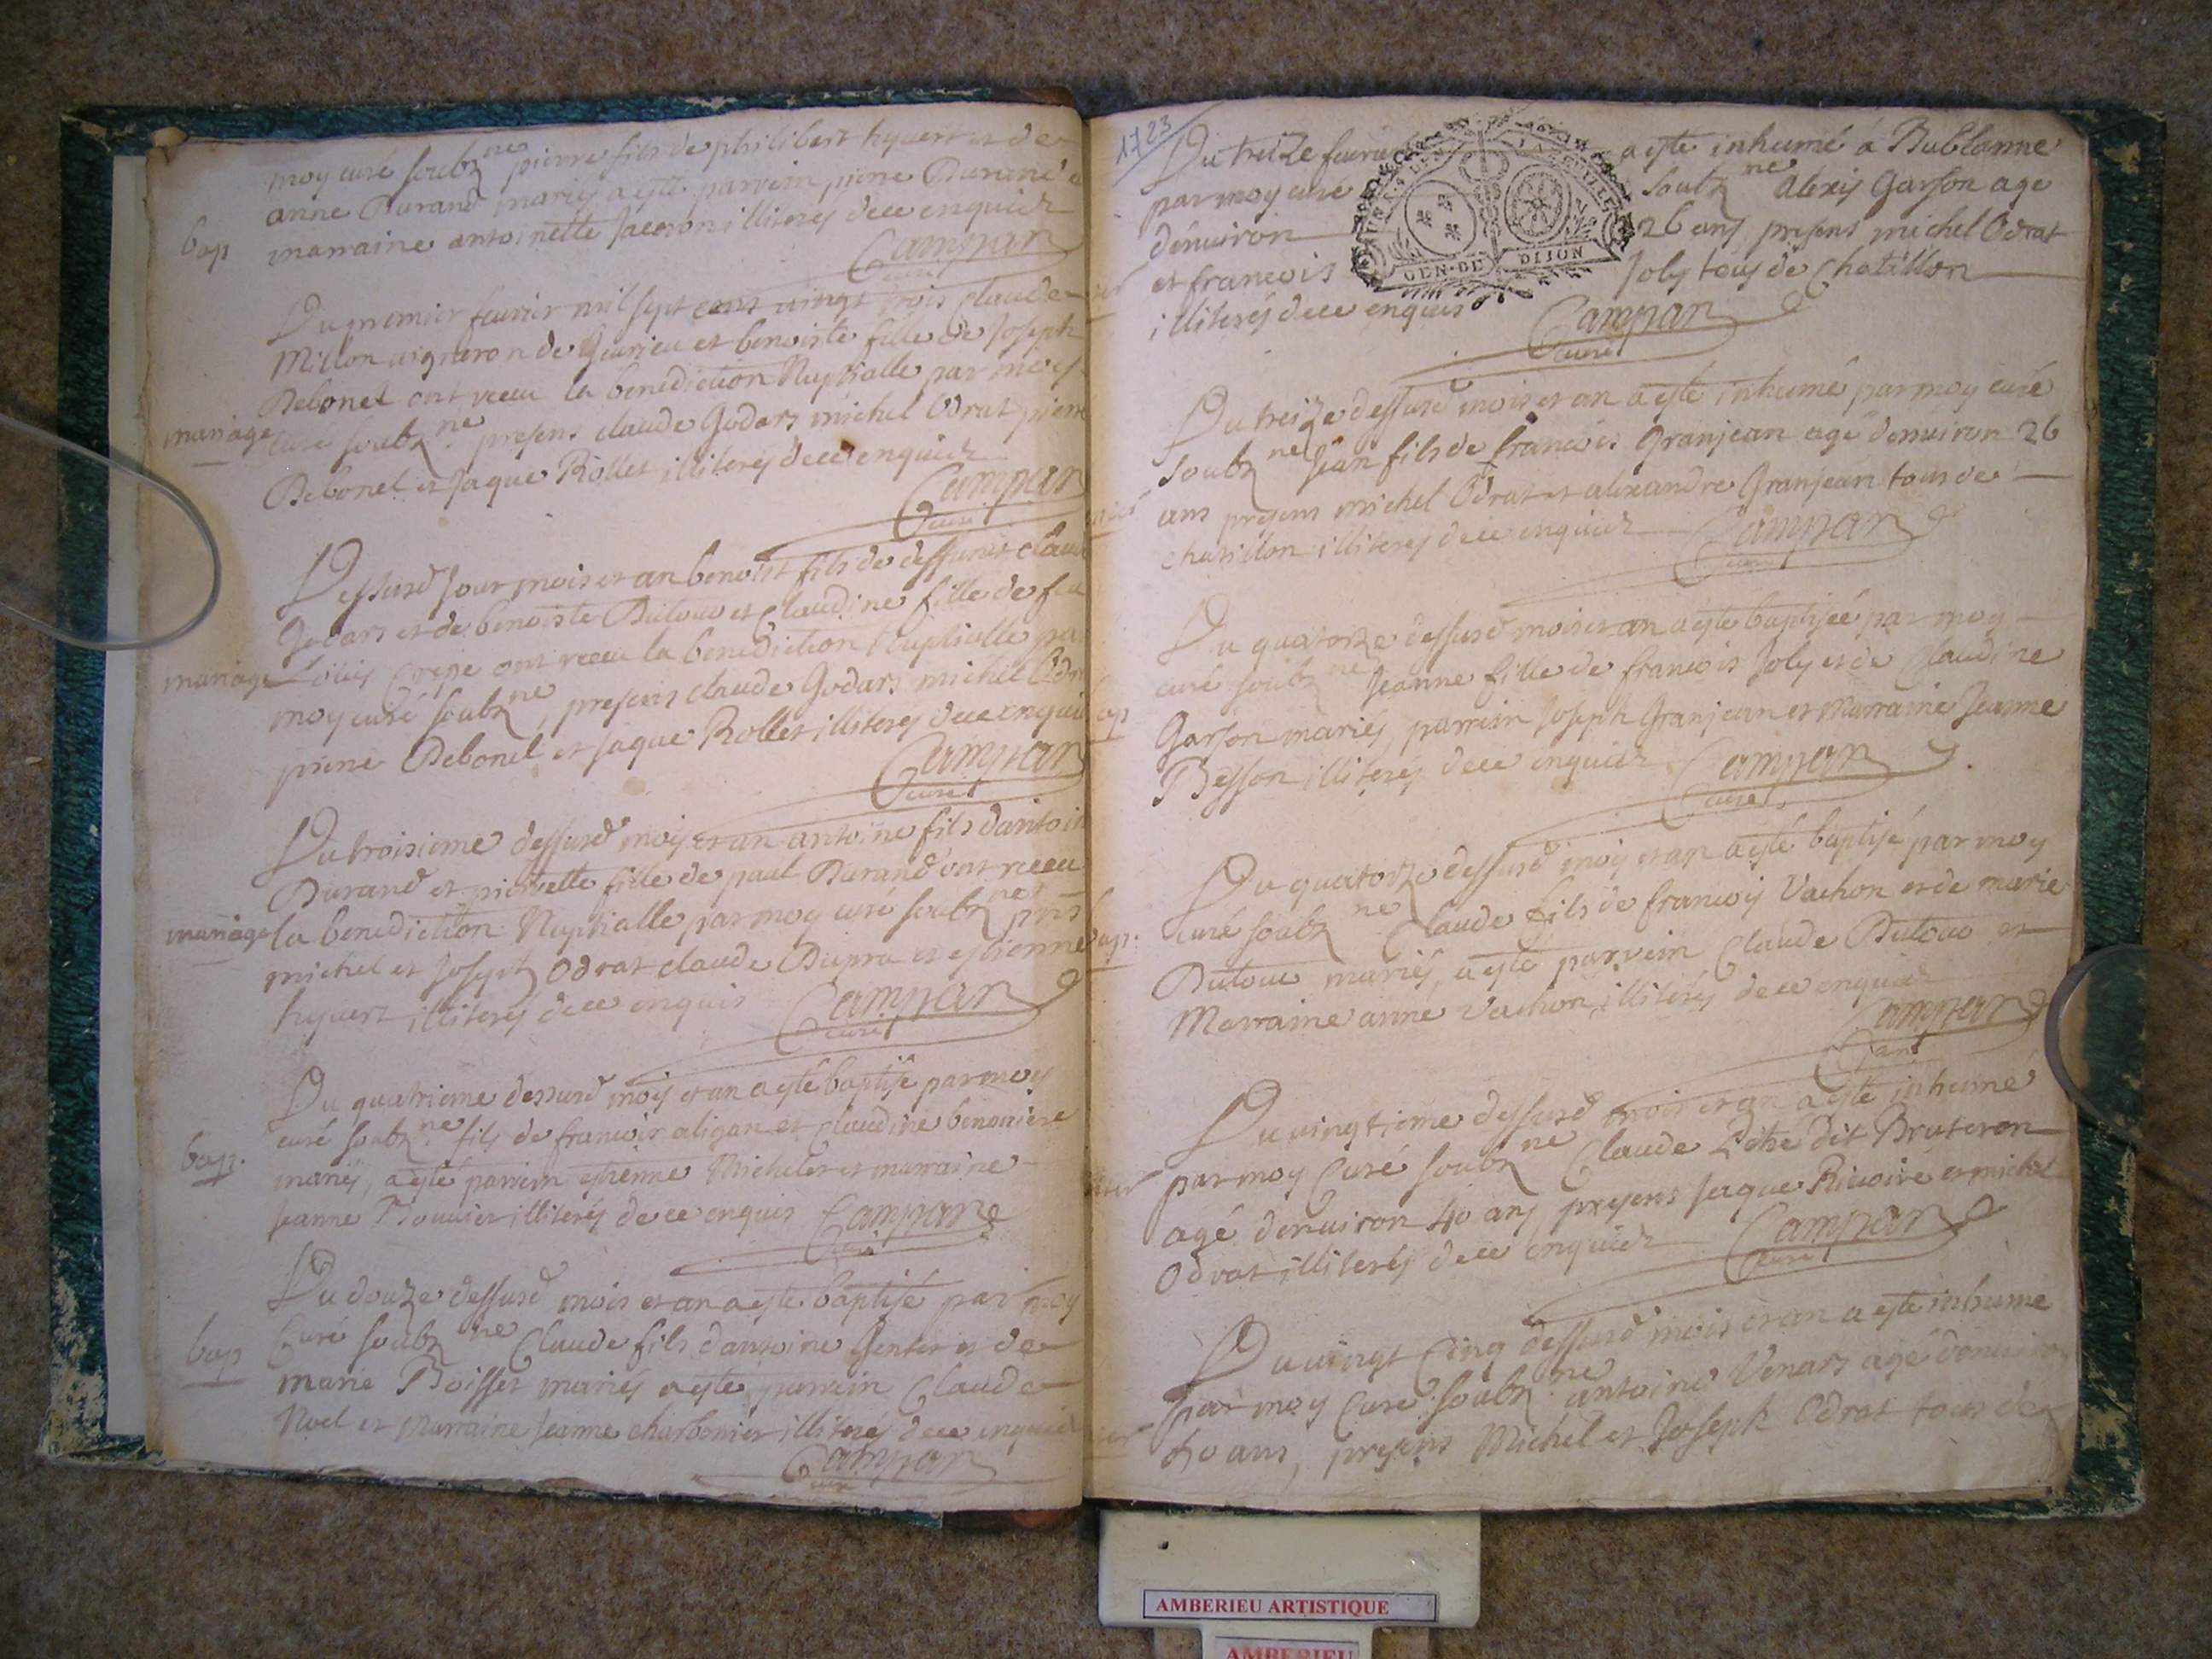 moy curé soubz ne pierre fils de philibert hyvert et de
anne Durand mariés a esté parrein pierre Durand
bap marraine antoinette illiterés de ce enquier
Campan
Du premier feuvrier mil sept cens vingt trois Claude
Millon vigneron de et benoiste fille de Joseph
Debonel ont receu la benediction Nuptialle par moy
mariage curé soubz ne presens claude Godars michel Odrat pierre
Debonel et Jaque Rollet illiterés de ce enquier
Campan
curé
Dessusd Jour mois et an benoist fils de deffunct claud
Godars et de benoiste Dutour et Claudine fille de
mariage Louis Crepe ont receu la benediction Nuptialle par
moy curé soubz ne, presens claude Godars michel Odra
pierre Debonel et Jaque Rollet illiterés de ce enquier
Campan
curé
Du troisieme dessusd mois et an antoine fils dantoin
Durand et pierrette fille de paul Durand ont receu
mariage la benediction Nuptialle par moy curé soubz ne pres
michel et Joseph Odrat claude Dupra et estienne
hyvert illiterés de ce enquis Campan
curé
Du quatrieme dessusd mois et an a esté baptisé par moy
curé soubz ne fils de francois aligan et Claudine
bap. mariés, a esté parrein estienne Michelet et marraine
Jeanne Bouvier illiterés de ce enquis Campan
curé
Du douze dessusd mois et an a esté baptisé par moy
bap Curé soubz ne Claude fils dantoine et de
marie Boisset mariés a esté parrein Claude
Noel et marraine Jeanne charbonier illiterés de ce enquier
Campan
curé
1723
Du treize feuvrier a esté inhumé á Bublanne
par moy curé soubz ne Alexis Garson age
denuiron 26 ans presens michel Odrat
et francois Joly tous de Chatillon
illiterés de ce enquis
GEN·DE DIJON
Campan
curé
Du treize dessusd mois et an a esté inhumé par moy curé
soubz ne Jean fils de francois Granjean agé denuiron 26
ans presens michel Odrat et alixandre Granjean tous de
chatillon illiterés de ce enquier Campan
curé
Du quatorze dessusd mois et an a esté baptisée par moy
curé soubz ne Jeanne fille de francois Joly et de Claudine
Garson mariés, parrein Joseph Granjean et Marraine Jeanne
Besson illiterés de ce enquier Campan
curé
Du quatorze dessusd mois et an a esté baptisé par moy
curé soubz ne Claude fils de francois Vachon et de marie
Dutour mariés, a esté parrein Claude Dutour et
Marraine anne Vachon, illiterés de ce enquier
Campan
curé
Du vingtieme dessusd mois et an a esté inhumé
par moy Curé soubz ne Claude dit Bruteron
agé denuiron 40 ans presens Jaque et michel
Odrat illiterés de ce enquier Campan
curé
Du vingt Cinq dessusd mois et an a esté inhumé
par moy Curé soubz ne antoine Venars agé denuiron
ans, presens Michel et Joseph Odrat tous de
AMBERIEU ARTISTIQUE
AMBERIEU